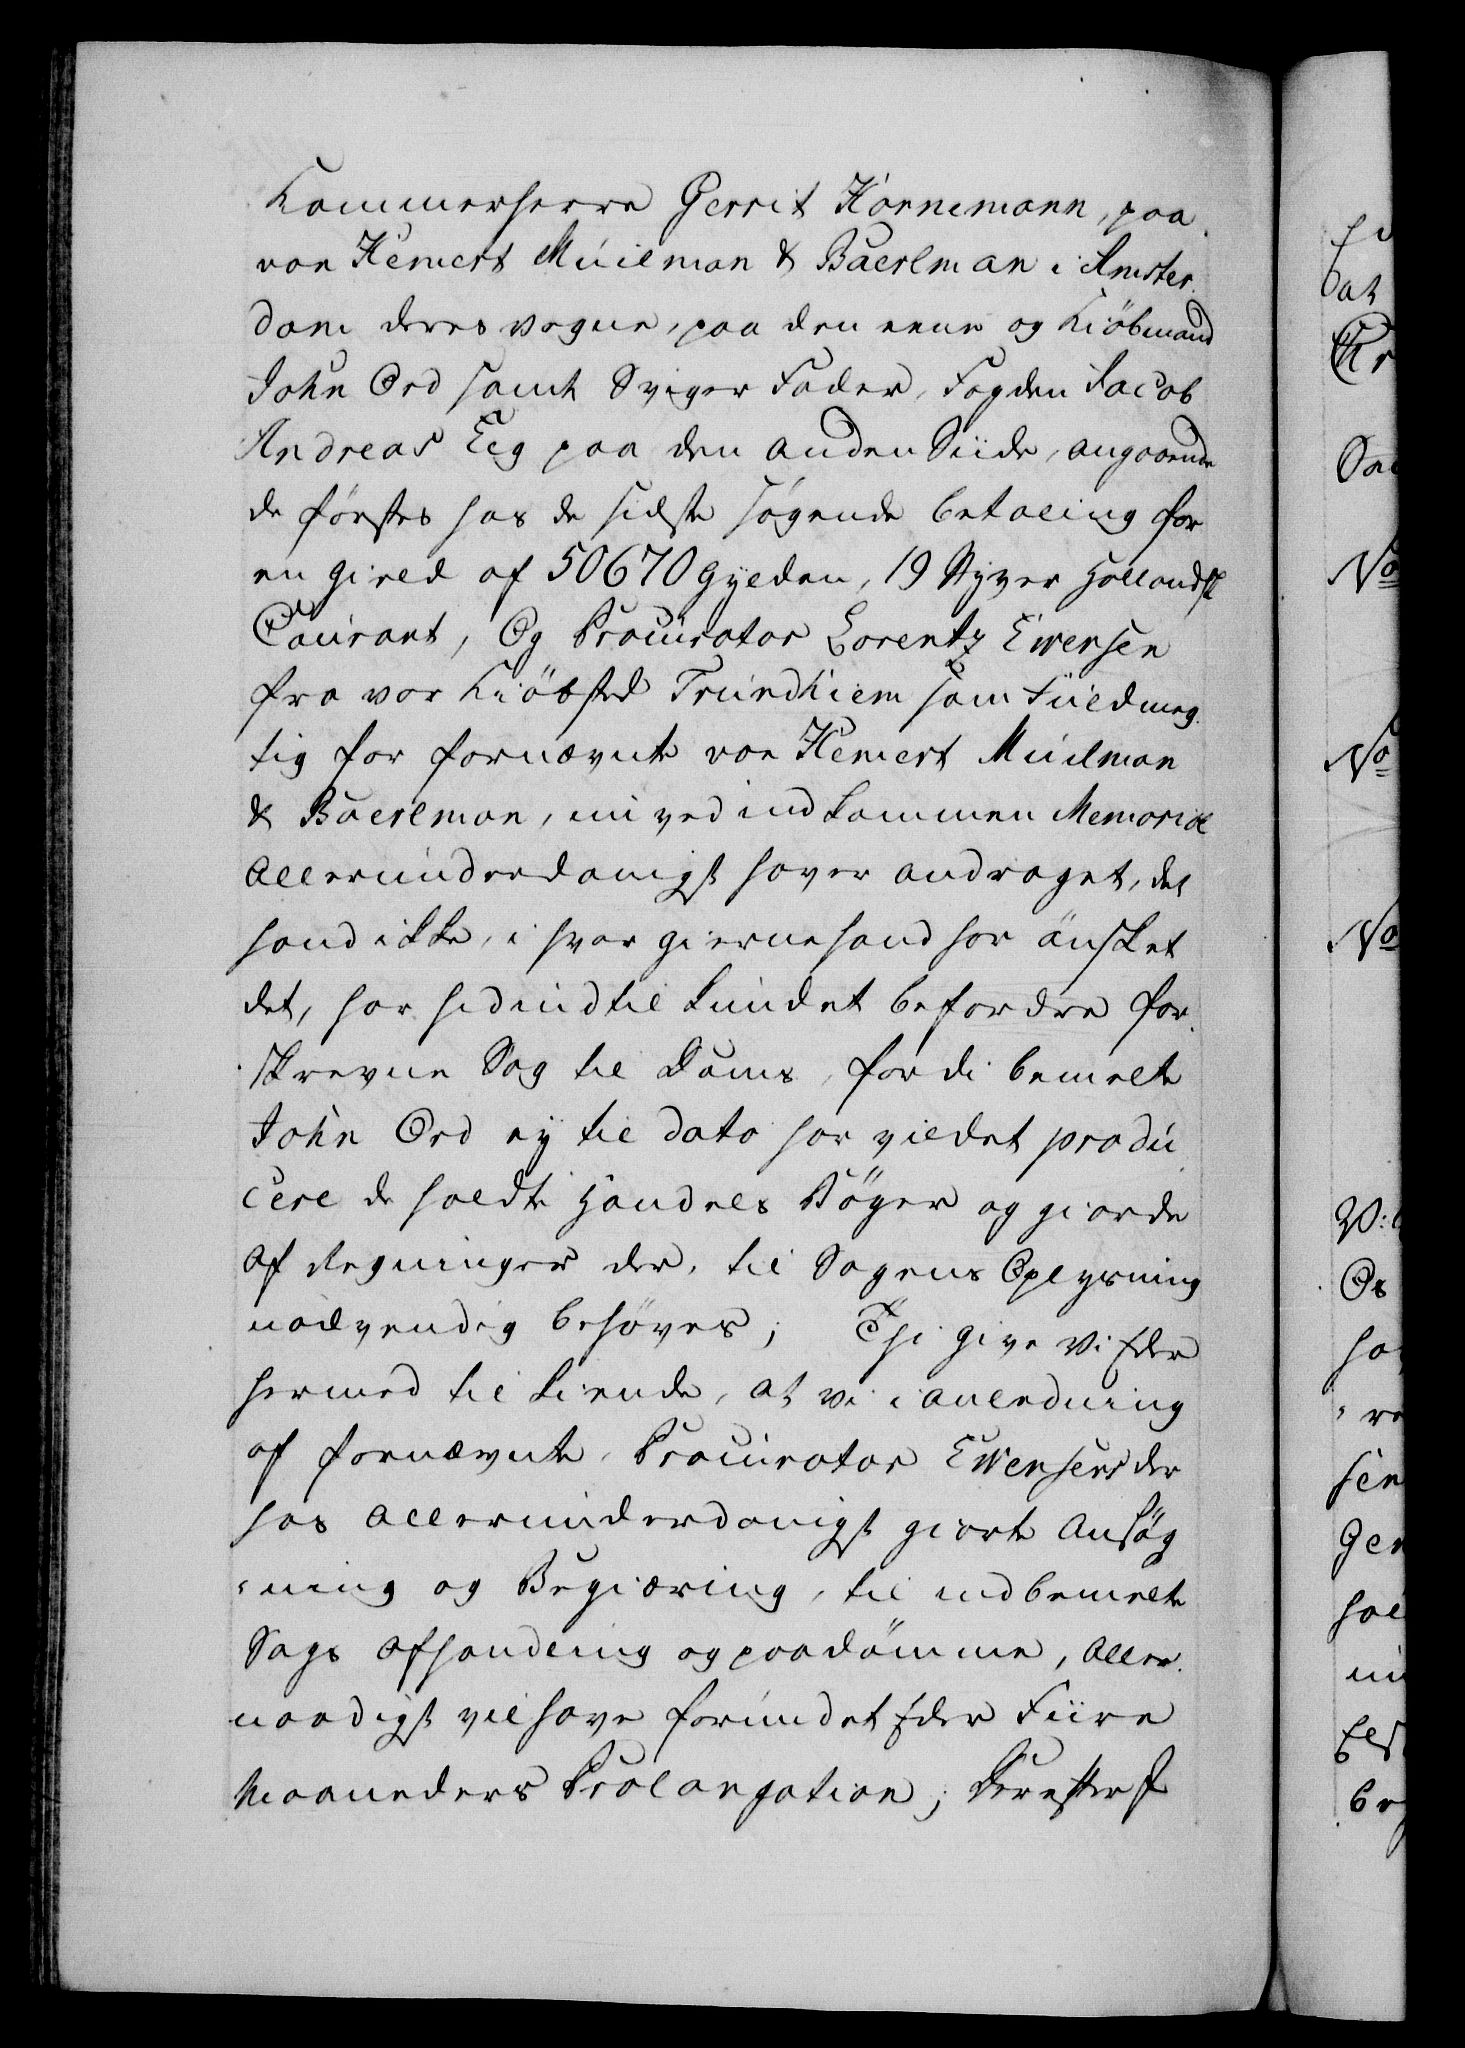 Kammerherre Gerrit Hornemann, paa
von Hemert Muilman & Baerlman i Amster-
dam deres vegne, paa den eene og Kiöbmand
John Ord samt Sviger Fader, Fogden Jacob
Andreas Eeg paa den anden Siide, angaaende
de førstes hos de sidste søgende betaling for
en Gield af 50670 Gylden, 19 Styver Hollandsk
Courant, Og Procurator Lorentz Ewensen
fra vor Kiöbsted Trundhiem som Fuldmæg-
tig for fornævnte von Hemert Muilman
& Baerlman, nu ved indkommen Memorial
Allerunderdanigst haver andraget, det
hand ikke, i hvor gierne hand har önsket
det, har hidindtil kundet befordre for-
skrevne Sag til Doms, fordi bemelte
John Ord ey til dato har vildet produ
cere de holdte Handels Böger og giorde
Afregninger der, til Sagens Oplysning
nödvendig behøves; Thi give Vi Eder
hermed til kiende, at vi i anledning
af fornævnte Procurator Ewensens der
hos Allerunderdanigst giorte Ansøg
-ning og Begiæring, til indbemelte
Sags Afhandling og paadömme, Aller-
naadigst vil have forundet Eder Fiire
Maaneders Prolongation; Derefter I